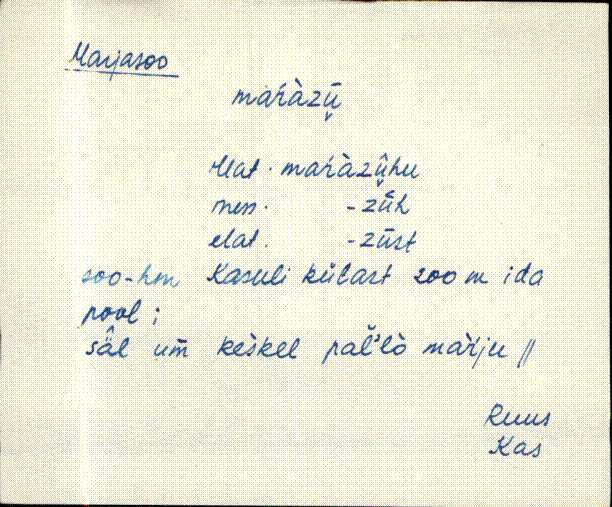 Marjasoo
maŕàzū̬
illat. maŕàzū̬hu
iness. -zū̬h
elat. -zūst
soo-hm Kasuli külast 200 m ida
pool;
sä̂l um̄ keskel paĺ'lò màŕju //
Ruus
Kas